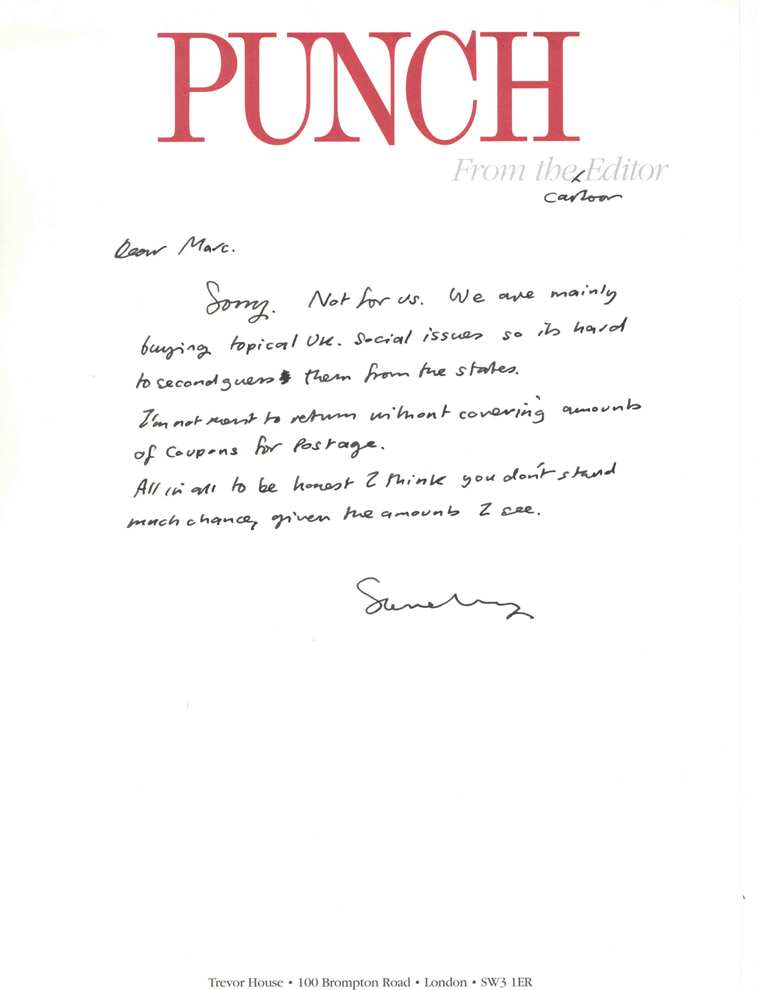 PUNCH
From the Editor
cartoon
Dear Marc.
Sorry. Not for us. We are mainly
buying topical UK. Social issues so its hard
to second guess them from the states.
I'm not meant to return without covering amounts
of Coupons for Postage.
All in all to be honest I think you don't stand
much chance, given the amounts I see.
Trevor House • 100 Brompton Road • London • SW3 1ER